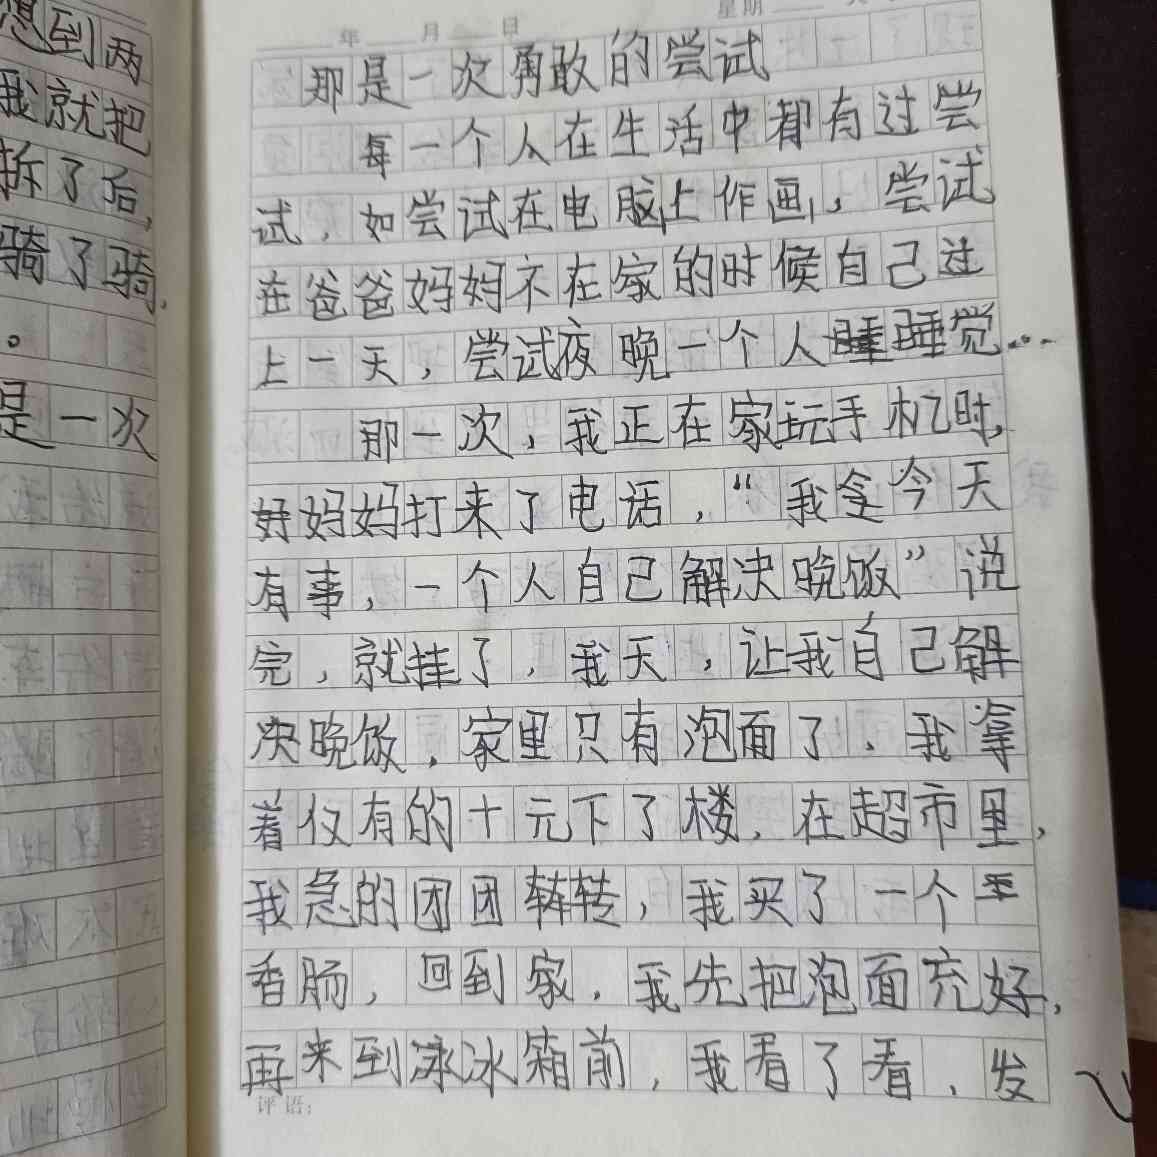 想到两
我就把
拆了后，
骑了骑，
。
是一次
年 月 日
星期
那是一次勇敢的尝试
每一个人在生活中都有过尝
试，如尝试在电脑上作画，尝试
在爸爸妈妈不在家的时候自己过
上一天，尝试夜晚一个人睡觉…
那一次，我正在家玩手机时，
妈妈打来了电话，“我今天
有事，一个人自己解决晚饭”说
完，就挂了，我天，让我自己解
决晚饭，家里只有泡面了，我拿
着仅有的十元下了楼，在超市里，
我急的团团转，我买了一个
香肠，回到家，我先把泡面充好，
再来到冰箱前，我看了看，发
评语：